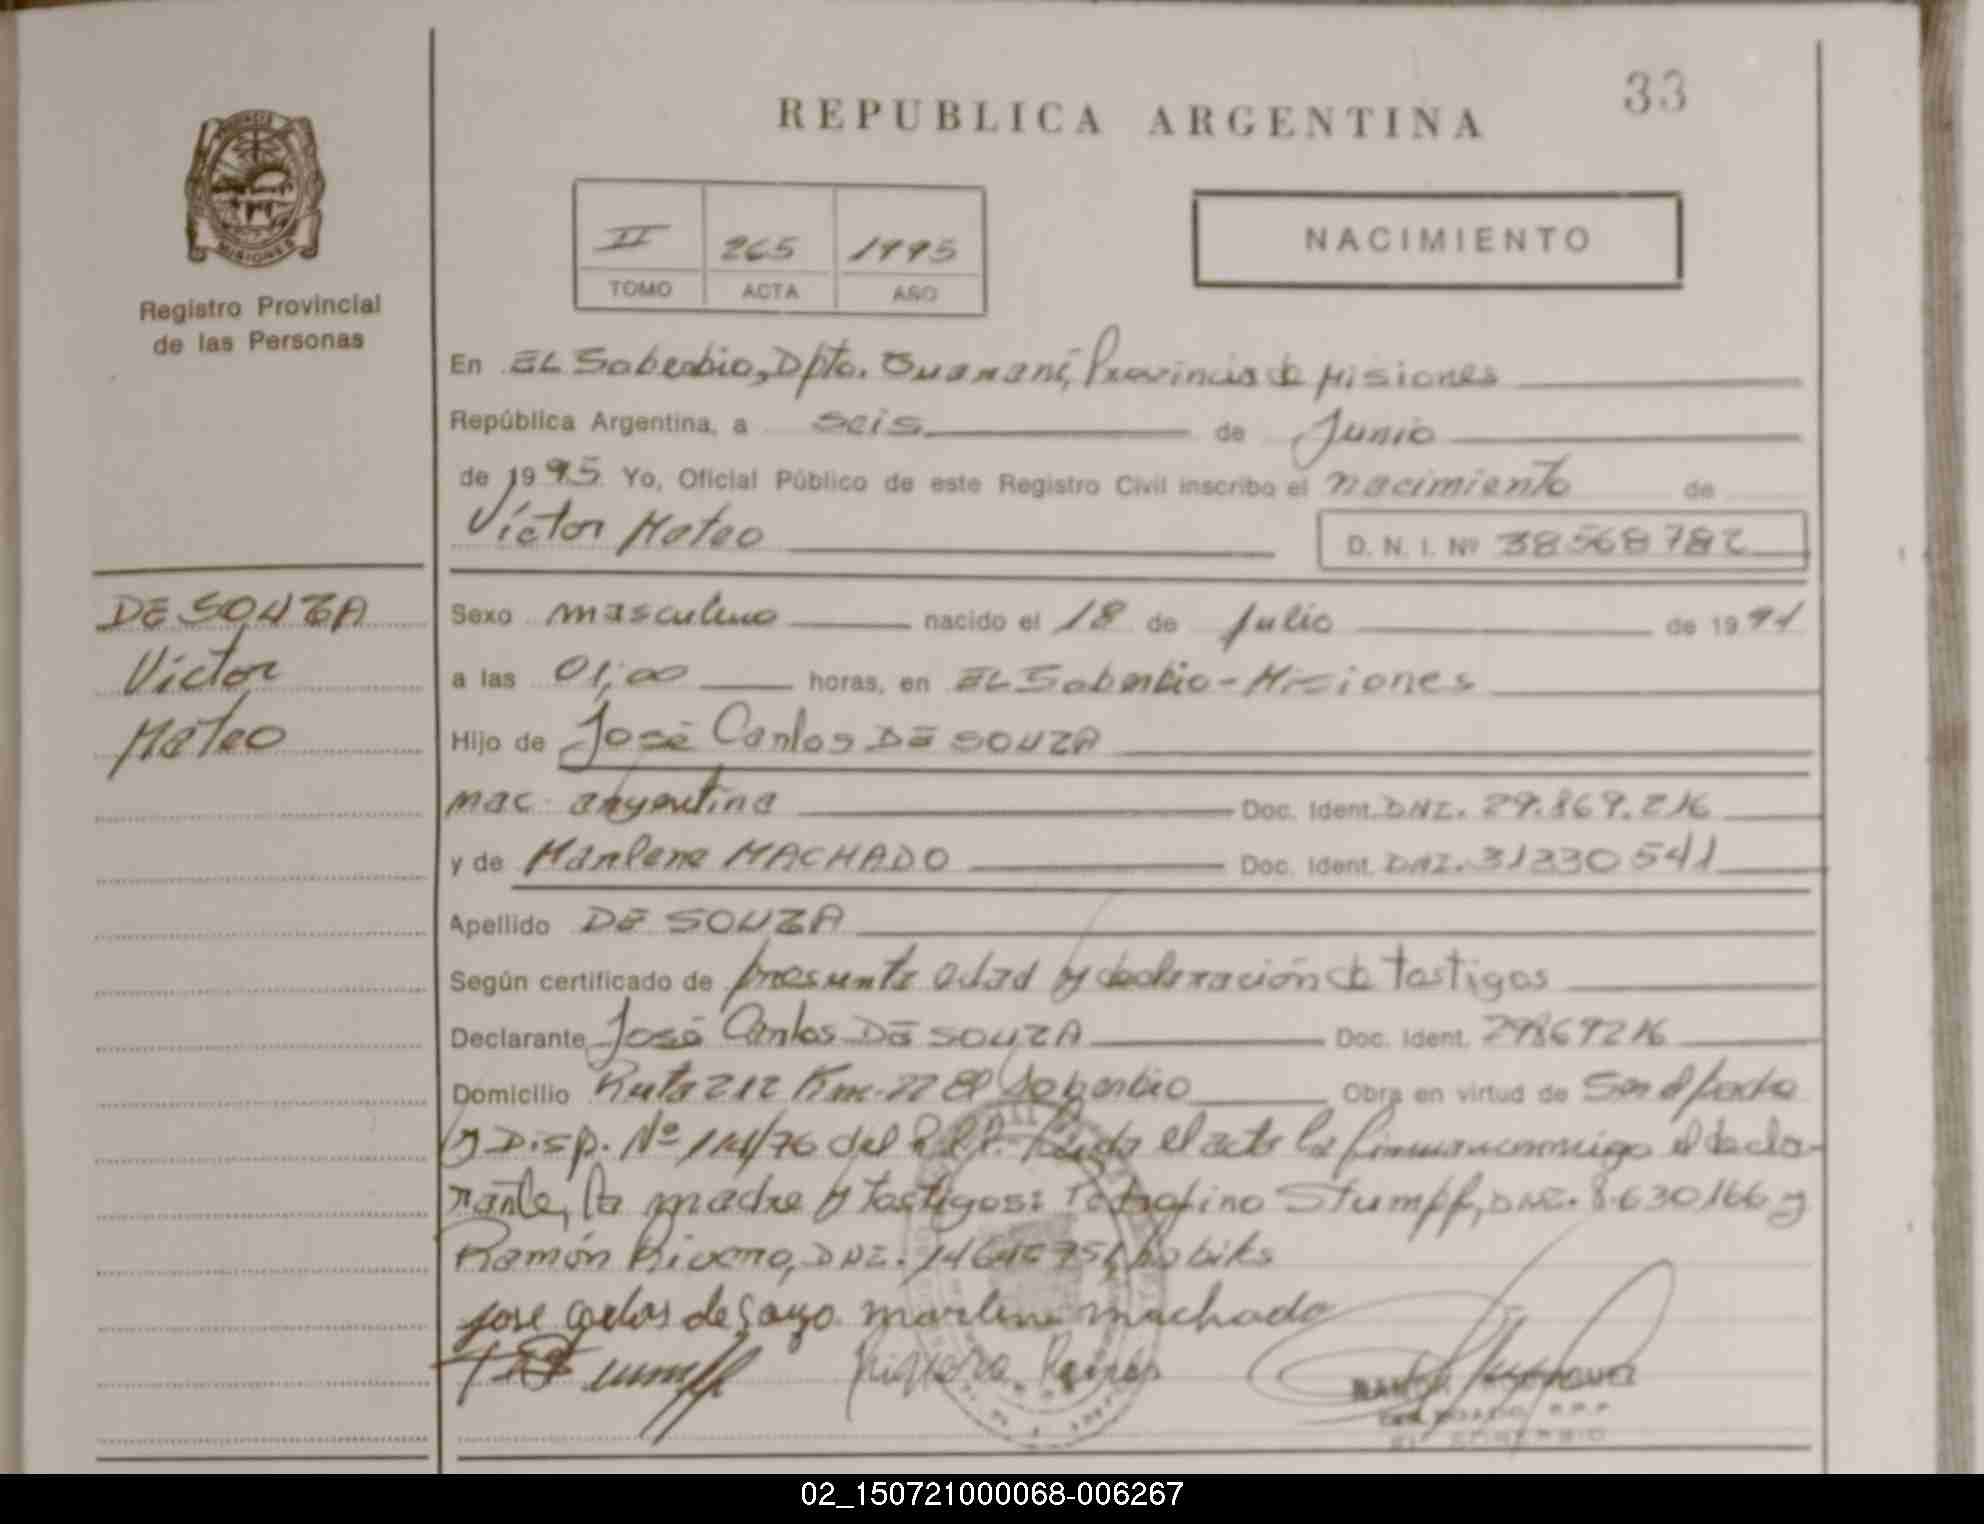 33
REPUBLICA ARGENTINA
PROVINCIA
MISIONES
Registro Provincial
de las Personas
II 265 1995
TOMO ACTA AÑO
NACIMIENTO
En EL Soberbio, Dpto. Guaraní, Provincia de Misiones
República Argentina, a seis de Junio
de 1995 Yo, Oficial Público de este Registro Civil inscribo el nacimiento de
Víctor Mateo D. N. I. Nº 38568782
DE SOUZA
Víctor
Mateo
Sexo masculino nacido el 18 de Julio de 1991
a las 01,00 horas, en EL Soberbio - Misiones
Hijo de José Carlos DE SOUZA
nac. argentina Doc. Ident. DNI. 29.869.216
y de Marlene MACHADO Doc. Ident. DNI. 31330541
Apellido DE SOUZA
Según certificado de presunta edad y declaración de testigos
Declarante José Carlos DE SOUZA Doc. Ident. 29869216
Domicilio Ruta 212 Km. 22 El Soberbio Obra en virtud de Ser el padre
y Disp. Nº 114/76 del R.P.P. Leída el acta la firman conmigo el decla-
rante, la madre y testigos: Stumpf, DNI. 8.630166 y
Ramón Rivero, DNI.
jose carlos de marlene machado
R.P.P.
EL SOBERBIO
02_150721000068-006267